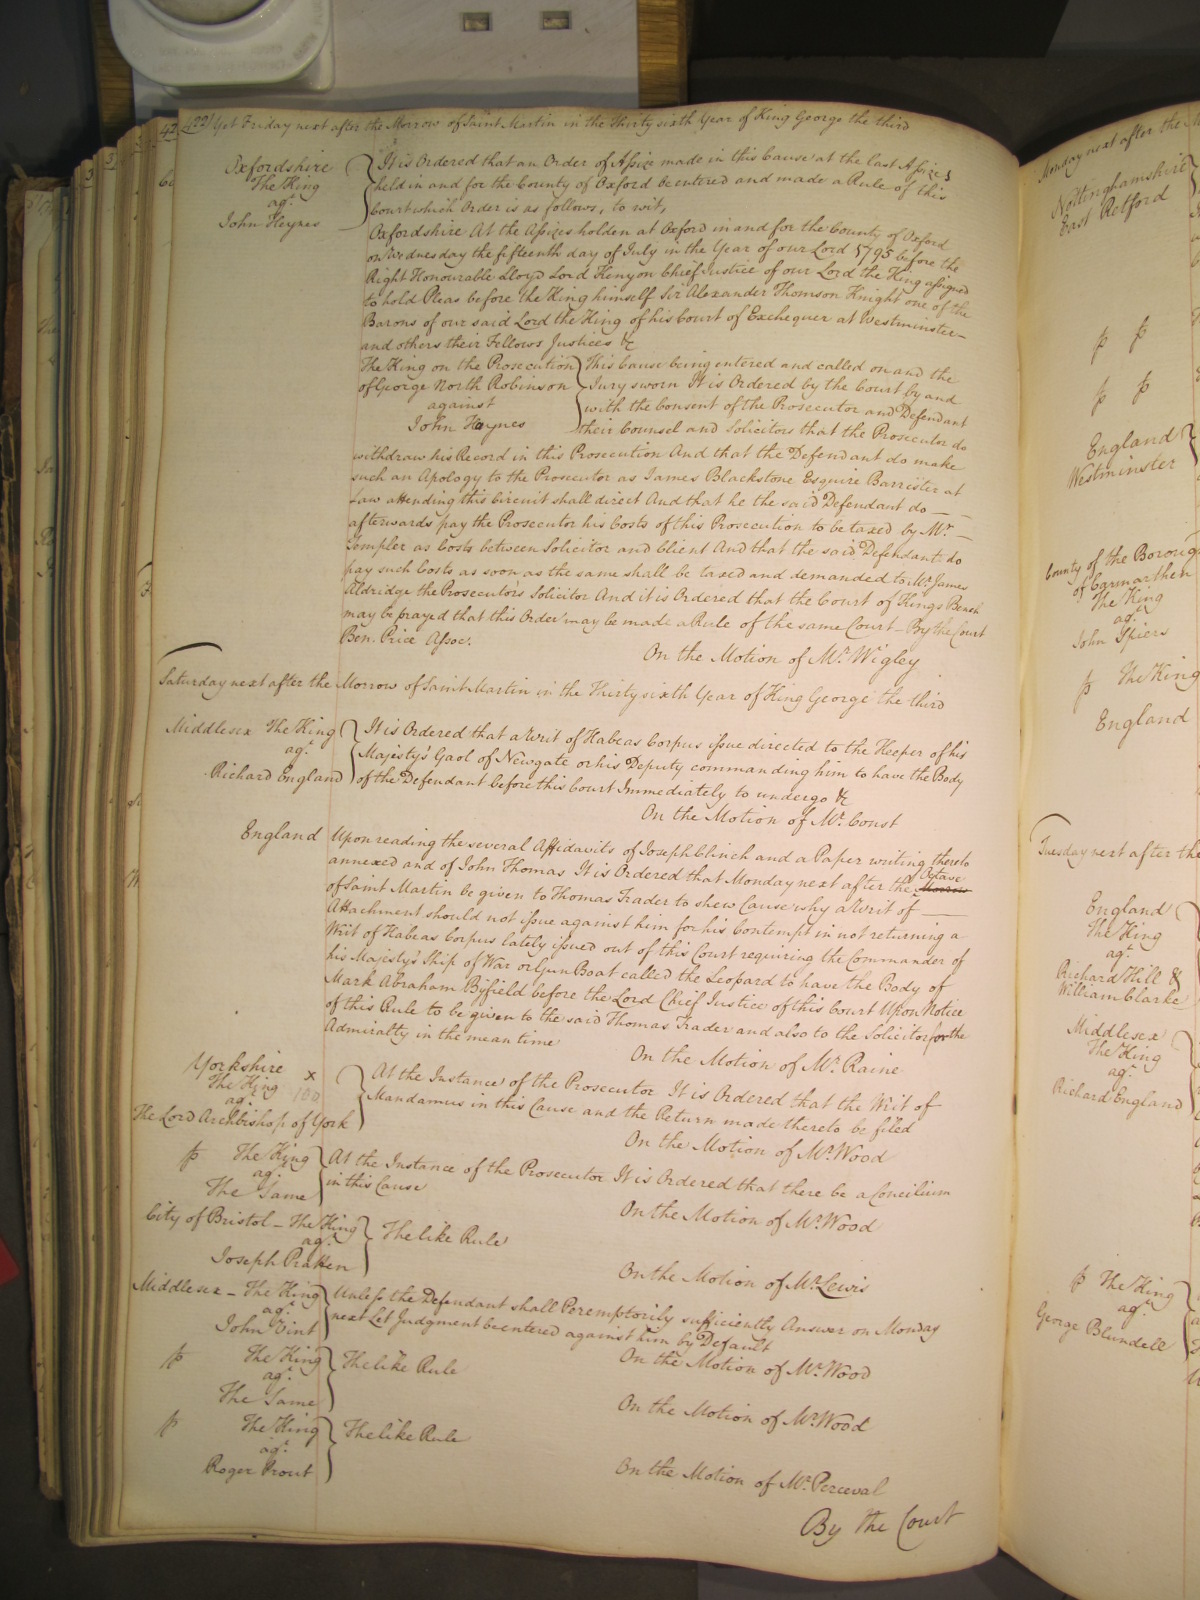 422) Yet Friday next after the Morrow of Saint Martin in the Thirty sixth Year of King George the third
Oxfordshire
The King
agt.
John Heynes
It is Ordered that an Order of Assize made in this Cause at the last Assizes
held in and for the County of Oxford be entered and made a Rule of this
Court which Order is as follows, to wit,
Oxfordshire At the Assizes holden at Oxford in and for the County of Oxford
on Wednesday the fifteenth day of July in the Year of our Lord 1795 before the
Right Honourable Lloyd Lord Kenyon Chief Justice of our Lord the King assigned
to hold Pleas before the King himself Sir Alexander Thomson Knight one of the
Barons of our said Lord the King of his Court of Exchequer at Westminster
and others their Fellows Justices &c
The King on the Prosecution
of George North Robinson
against
John Haynes
This Cause being entered and called on and the
Jury sworn It is Ordered by the Court by and
with the Consent of the Prosecutor and Defendant
their Counsel and Solicitors that the Prosecutor do
withdraw his Record in this Prosecution And that the Defendant do make
such an Apology to the Prosecutor as James Blackstone Esquire Barrister at
Law attending this Circuit shall direct And that he the said Defendant do
afterwards pay the Prosecutor his Costs of this Prosecution to be taxed by Mr.
Templer as Costs between Solicitor and Client And that the said Defendant do
pay such Costs as soon as the same shall be taxed and demanded to Mr. James
Aldridge the Prosecutor's Solicitor And it is Ordered that the Court of Kings Bench
may be prayed that this Order may be made a Rule of the same Court - By the Court
Ben. Price Assoc.
On the Motion of Mr. Wigley
Saturday next after the Morrow of Saint Martin in the Thirty sixth Year of King George the third
Middlesex The King
agt.
Richard England
It is Ordered that a Writ of Habeas Corpus issue directed to the Keeper of his
Majesty's Gaol of Newgate or his Deputy commanding him to have the Body
of the Defendant before this Court Immediately to undergo &c
On the Motion of Mr. Const
England
Upon reading the several Affidavits of Joseph Clinch and a Paper writing thereto
annexed and of John Thomas It is Ordered that Monday next after the Morrow Octave
of Saint Martin be given to Thomas Trader to shew Cause why a Writ of
Attachment should not issue against him for his Contempt in not returning a
Writ of Habeas Corpus lately issued out of this Court requiring the Commander of
his Majesty's Ship of War or Gun Boat called the Leopard to have the Body of
Mark Abraham Byfield before the Lord Chief Justice of this Court Upon Notice
of this Rule to be given to the said Thomas Trader and also to the Solicitor for the
Admiralty in the mean time
On the Motion of Mr. Raine
Yorkshire
The King x
agt.
The Lord Archbishop of York
At the Instance of the Prosecutor It is Ordered that the Writ of
Mandamus in this Cause and the Return made thereto be filed
On the Motion of Mr. Wood
p The King
agt.
The Same
At the Instance of the Prosecutor It is Ordered that there be a Concilium
in this Cause
On the Motion of Mr. Wood
City of Bristol - The King
agt.
Joseph Pratten
The like Rule
On the Motion of Mr. Lewis
Middlesex - The King
agt.
John Vint
Unless the Defendant shall Peremptorily sufficiently Answer on Monday
next Let Judgment be entered against him by Default
On the Motion of Mr. Wood
p The King
agt.
The Same
The like Rule
On the Motion of Mr. Wood
p The King
agt.
Roger Prout
The like Rule
On the Motion of Mr. Perceval
By the Court
Monday next after the
Nottinghamshire
East Retford
p p
p p
England
Westminster
County of the Boroug
of Carmarthen
The King
agt.
John Spiers
p The King
England
Tuesday next after the
England
The King
agt.
Richard Hill &
William Clarke
Middlesex
The King
agt.
Richard England
p The King
agt.
George Blundell